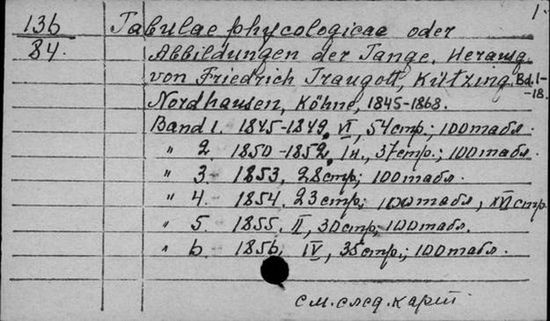 136
84.
Tabulae phycologicae oder
Abbildungen der Tange. Herausg.
von Friedrich Traugott, Kützing. Bd. 1-
-18.
Nordhausen, Köhne, 1845-1868.
Band 1. 1845-1849. VI, 54 стр.; 100 табл.
" 2. 1850-1852. 37 стр.; 100 табл.
" 3. 1853. 28 стр; 100 табл.
" 4. 1854. 23 стр; 100 табл, XVI стр
" 5. 1855. II, 30 стр; 100 табл.
" 6. 1856. IV, 35 стр.; 100 табл.
см. след. карт